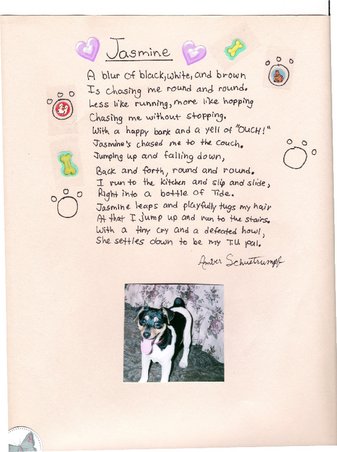 Jasmine
A blur of black, white, and brown
Is chasing me round and round.
Less like running, more like hopping
Chasing me without stopping.
With a happy bark and a yell of "OUCH!"
Jasmine's chased me to the couch.
Jumping up and falling down,
Back and forth, round and round.
I run to the kitchen and slip and slide,
Right into a bottle of Tide.
Jasmine leaps and playfully tugs my hair
At that I jump up and run to the stairs.
With a tiny cry and a defeated howl,
She settles down to be my pal.
Amber